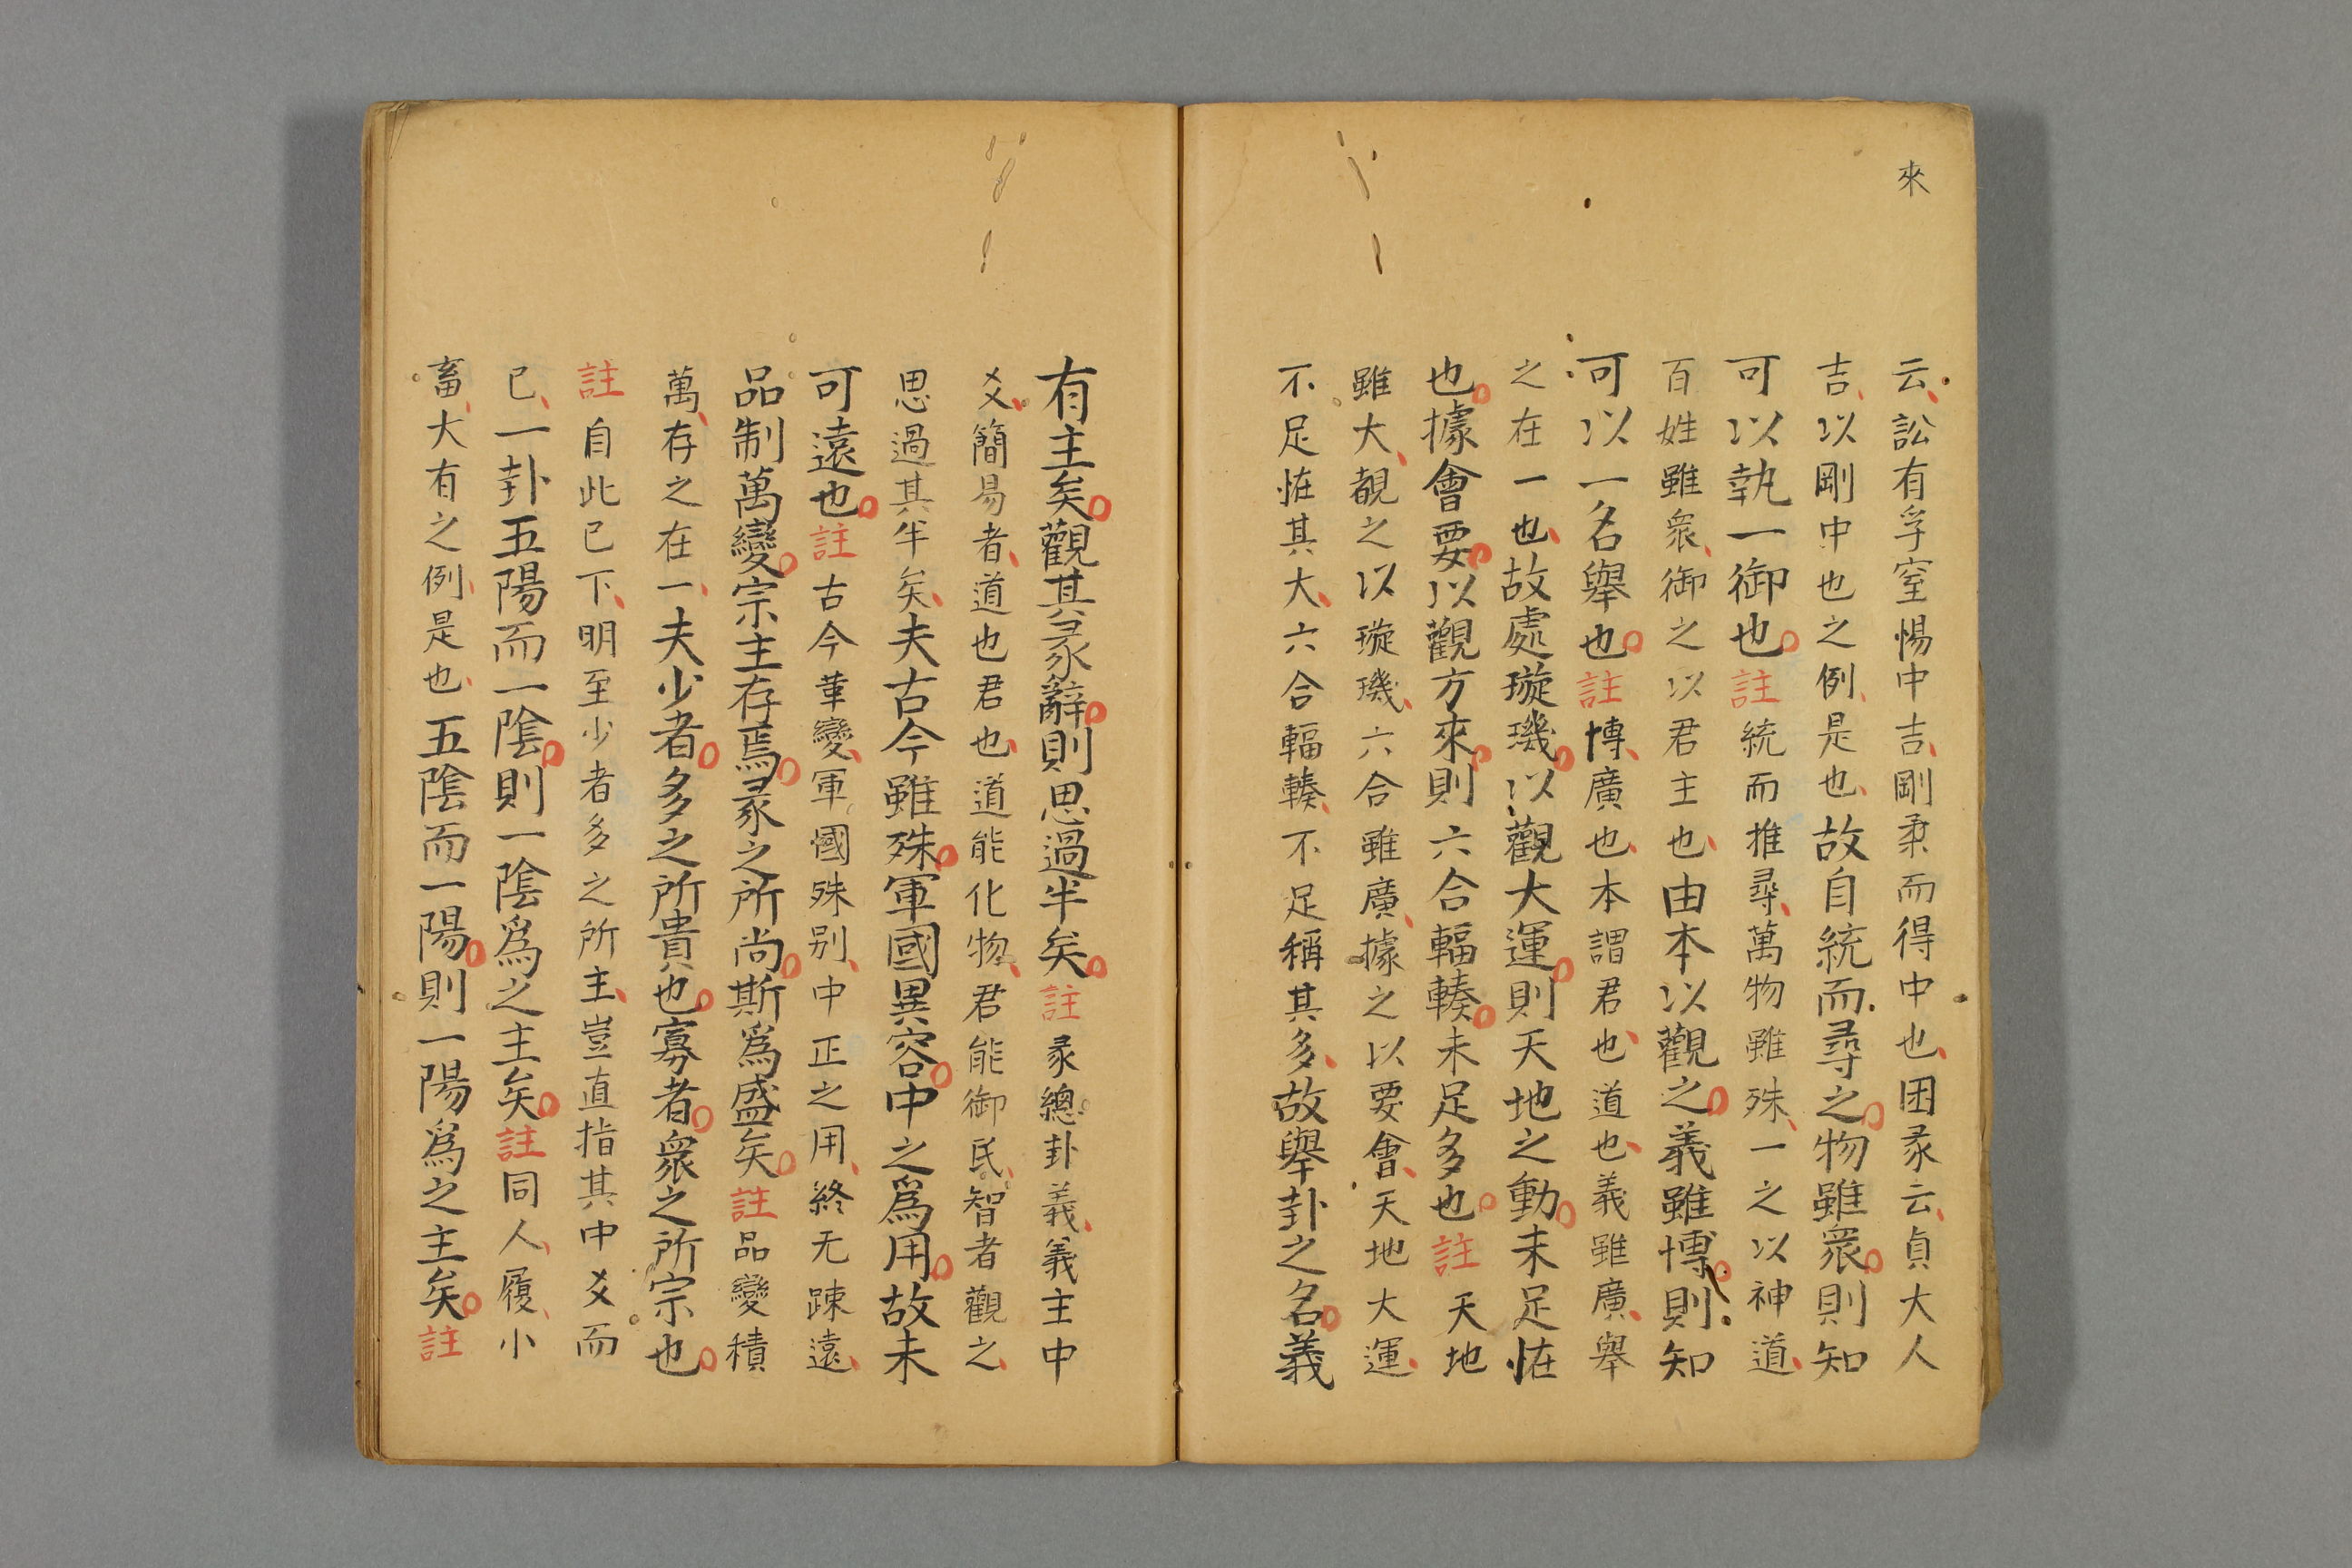 來
云訟有孚窒惕中吉剛来而得中也困彖云貞大人
吉以剛中也之例是也故自統而尋之物雖衆則知
可以執一御也註統而推尋萬物雖殊一之以神道
百姓雖衆御之以君主也由本以觀之義雖博則知
可以一名舉也註博廣也本謂君也道也義雖廣舉
之在一也故處璇璣以觀大運則天地之動未足恠
也據會要以觀方來則六合輻輳未足多也註天地
雖大覩之以璇璣六合雖廣據之以要會天地大運
不足恠其大六合輻輳不足稱其多故舉卦之名義
有主矣觀其彖辭則思過半矣註彖總卦義義主中
爻簡易者道也君也道能化物君能御民智者觀之
思過其半矣夫古今雖殊軍國異容中之爲用故未
可遠也註古今革變軍國殊别中正之用終无踈遠
品制萬變宗主存焉彖之所尚斯爲盛矣註品變積
萬存之在一夫少者多之所貴也寡者衆之所宗也
註自此已下明至少者多之所主豈直指其中爻而
已一卦五陽而一陰則一陰爲之主矣註同人履小
畜大有之例是也五陰而一陽則一陽爲之主矣註